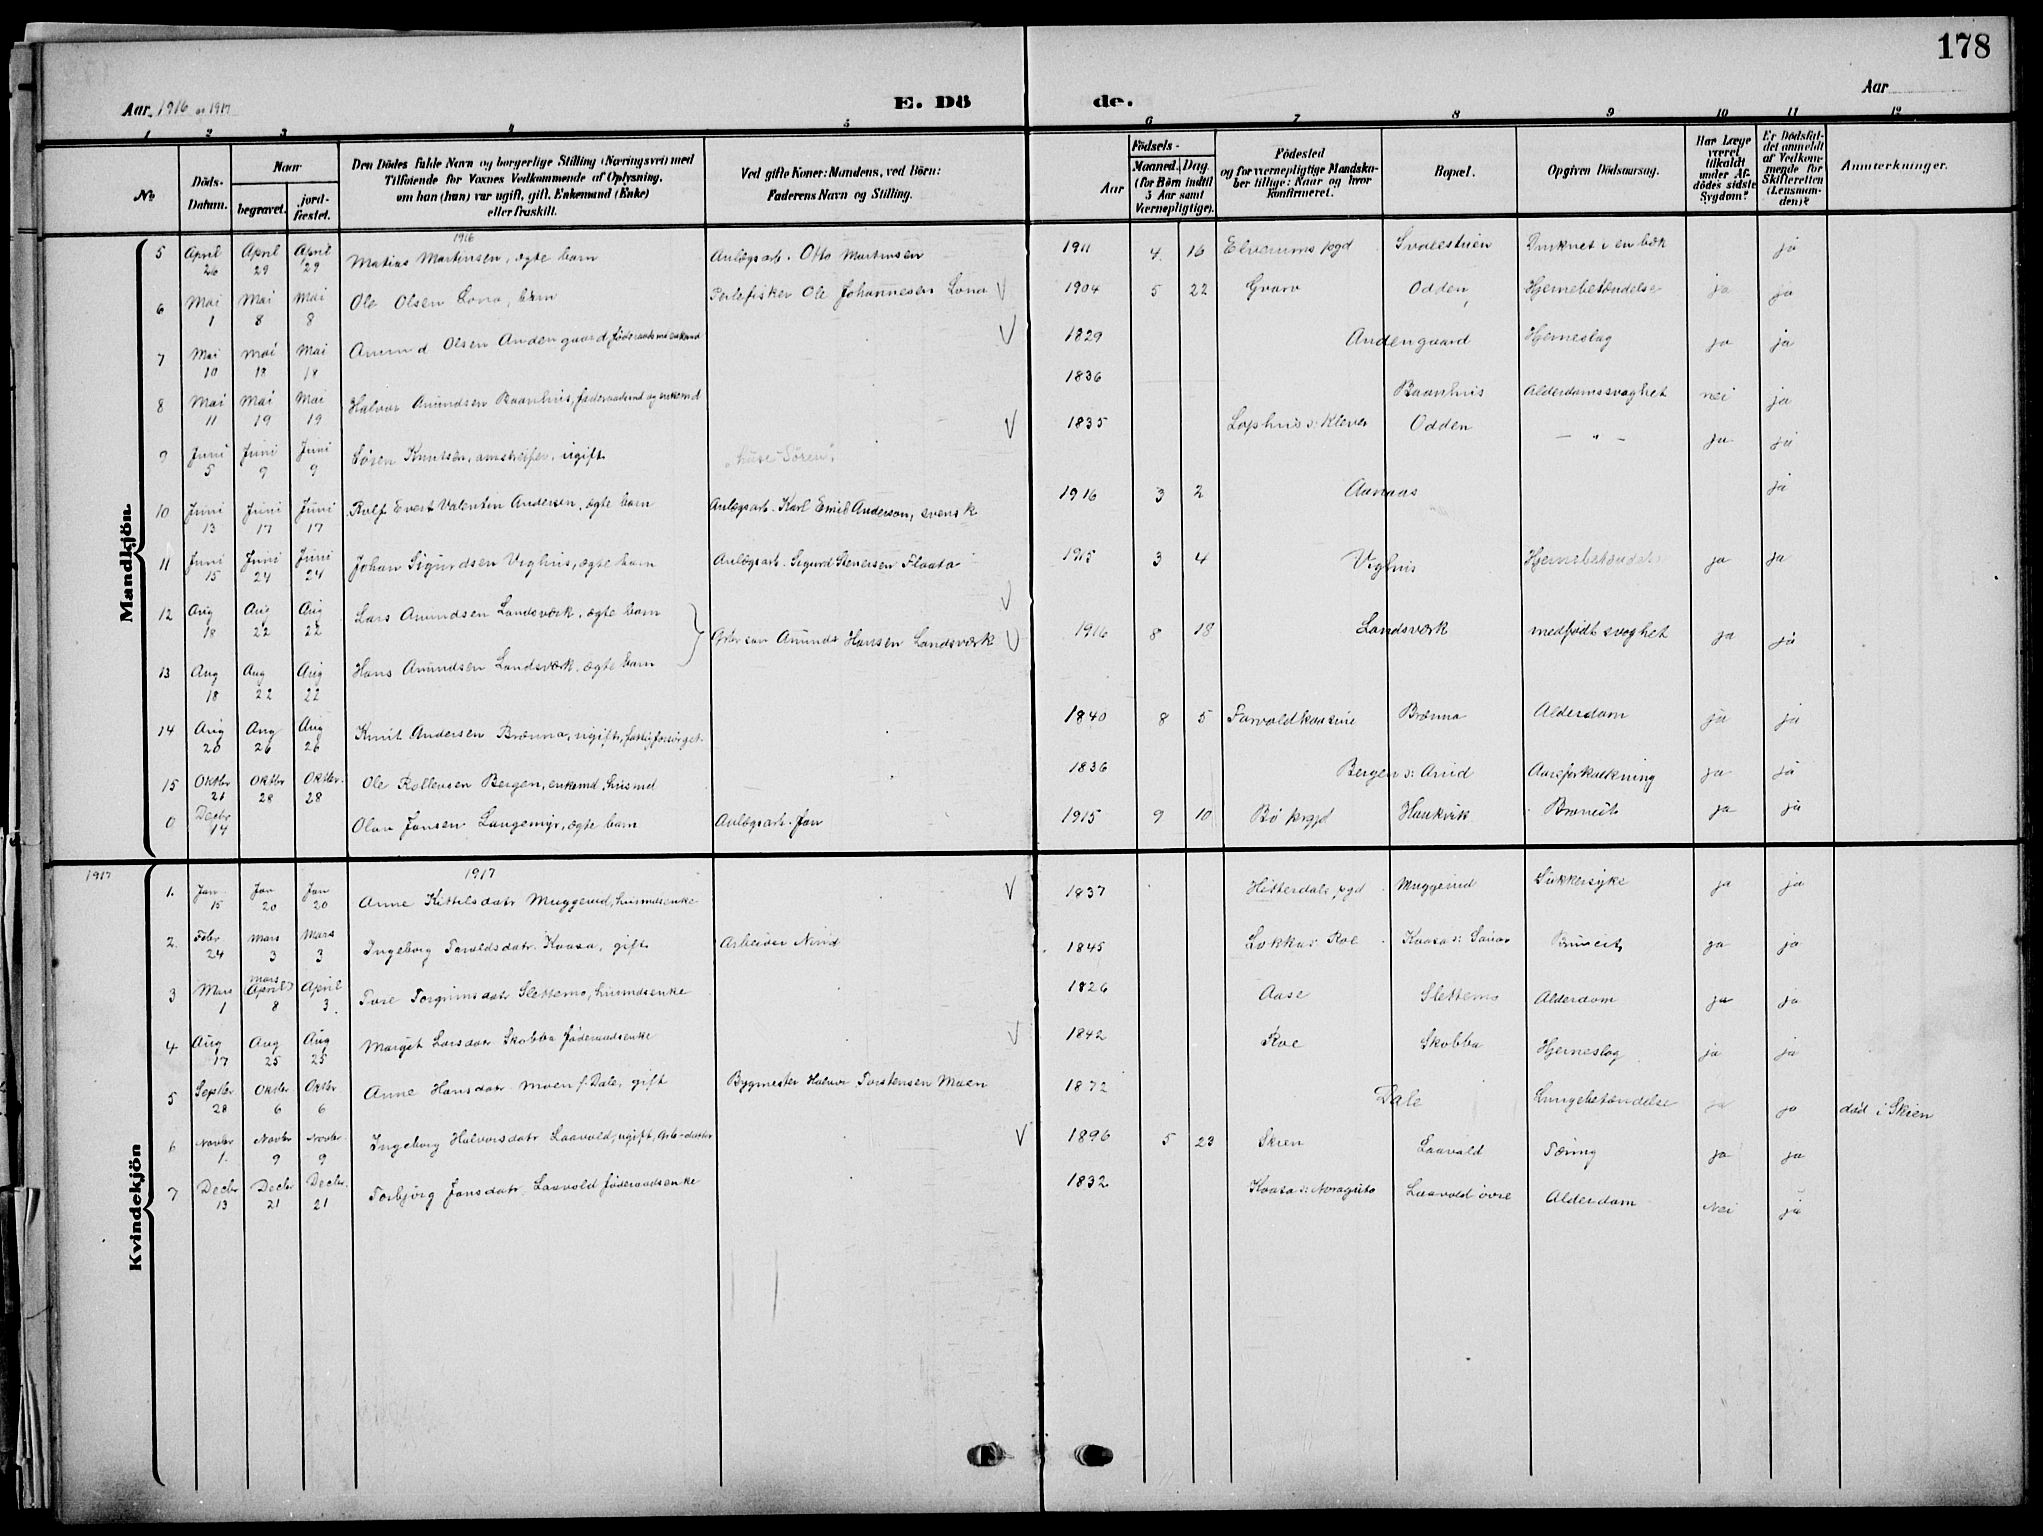 178
Aar 1916 og 1917 E. Dö de. Aar
1 2 3 4 5 6 7 8 9 10 11 12
No Döds-Datum. Naar begravet. jord-fæstet. Den Dödes fulde Navn og borgerlige Stilling (Næringsvei) med Tilföiende for Voxnes Vedkommende af Oplysning, om han (hun) var ugift, gift, Enkemand (Enke) eller fraskilt. Ved gifte Koner: Mandens, ved Börn: Faderens Navn og Stilling. Födsels- Aar Maaned. Dag. (for Börn indtil 5 Aar samt Værnepligtige). Födested og for værnepligtige Mandskaber tillige: Naar og hvor konfirmeret. Bopæl. Opgiven Dödsaarsag. Har Læge været tilkaldt under Afdödes sidste Sygdom? Er Dödsfaldet anmeldt af Vedkommende for Skifteretten (Lensmanden)? Anmærkninger.
Mandkjön
1916
5 April 26 April 29 April 29 Matias Martinsen, ægte barn Anlægsarb. Otto Martinsen 1911 4 16 Elverums pgd Svalestuen Druknet i en bæk ja
6 Mai 1 Mai 8 Mai 8 Ole Olsen Lona, barn Perlefisker Ole Johannesen Lona V 1904 5 22 Gvarv Odden Hjernebetændelse ja ja
7 Mai 10 Mai 18 Mai 18 Amund Olsen Andengaard föderaadsmd enkemd V 1829 Andengaard Hjerneslag ja ja
8 Mai 11 Mai 19 Mai 19 Halvor Amundsen Baanhus, föderaadsmd og enkemd 1836 Baanhus Alderdomssvaghet nei ja
9 Juni 5 Juni 9 Juni 9 Sören Knutsen, ugift Sören" V 1835 Klever Odden - " - ja ja
10 Juni 13 Juni 17 Juni 17 Rolf Evert Valentin Andersen, ægte barn Anlægsarb. Karl Emil Anderson, svensk 1916 3 2 Aanaas ja
11 Juni 15 Juni 24 Juni 24 Johan Sigurdsen Vighus, ægte barn Anlægsarb. Sigurd Stenersen Flaata 1915 3 4 Vighus Hjernebetændels ja ja
12 Aug 18 Aug 22 Aug 22 Lars Amundsen Landsværk, ægte barn V
Amund Hansen Landsværk V 1916 8 18 Landsværk medfödt svaghet ja ja
13 Aug 18 Aug 22 Aug 22 Hans Amundsen Landsværk, ægte barn
14 Aug 20 Aug 26 Aug 26 Knut Andersen Brænna, ugift, fattigforsörget 1840 8 5 Brænna Alderdom ja ja
15 Oktbr 21 Oktbr 28 Oktbr 28 Ole Rollevsen Bergen, enkemd, husmd 1836 Bergen Aareforkalkning ja ja
0 Decbr 14 Olav Jonsen Langemyr, ægte barn Anlægsarb. Jon 1915 9 10 Bö prgjd Haukvik Broncit ja ja
Kvindekjön
1917 1917
1. Jan. 15 Jan 20 Jan 20 Anne Kittilsdatr Muggerud, husmdsenke V 1837 Hitterdals pgd Muggerud Sukkersyke ja ja
2. Febr 24 Mars 3 Mars 3 Ingeborg Toroldsdatr. Kaasa, gift Arbeider 1845 Roe Kaasa Broncit ja ja
3 Mars 1 mars (April) 8 April 3. Tore Torgrimsdatr Slettemo, husmdsenke 1826 Aase Slettemo Alderdom ja ja
4 Aug 17 Aug 25 Aug 25 Margit Larsdatr Skobba föderaadsenke V 1842 Roe Skobba Hjerneslag ja ja
5 Septbr 28 Oktbr 6 Oktbr 6 Anne Hansdatr. Moen f. Dale, gift Bygmester Halvor Torstensen Moen 1872 Dale Lungebetændelse ja ja död i Skien
6 Novbr 1. Novbr 9 Novbr. 9 Ingeborg Halvorsdatr Laavold, ugift, V 1896 5 23 Skien Laavold Tæring ja ja
7 Decbr 13 Decbr 21 Decbr. 21 Torbjörg Jonsdatr. Laavold föderaadsenke 1832 Kaasa Laavold övre Alderdom Nei ja